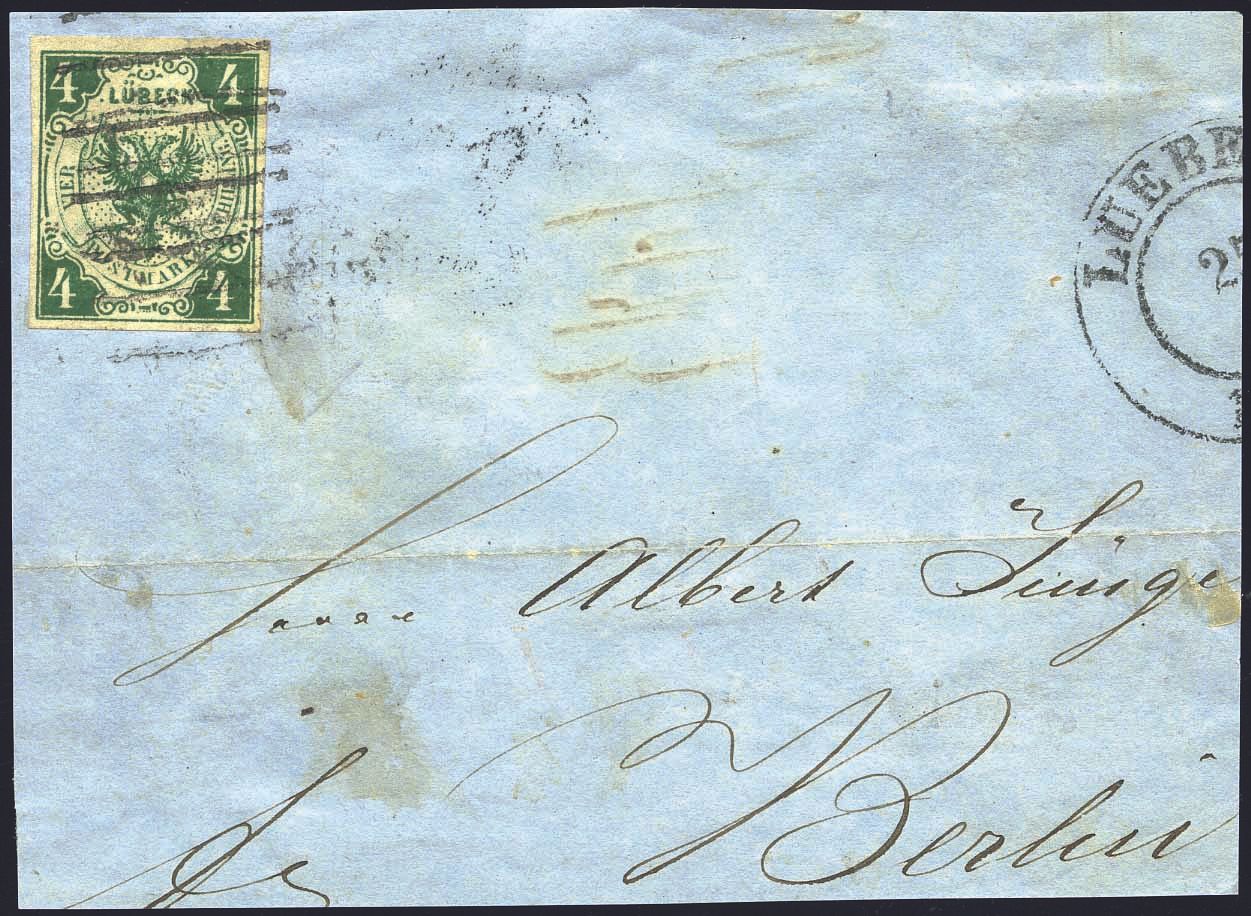 4 4
LÜBECK
VIER SCHILLINGE
POSTMARKE
4 4
LUEBE
25
Herrn Albert Junge
Berlin